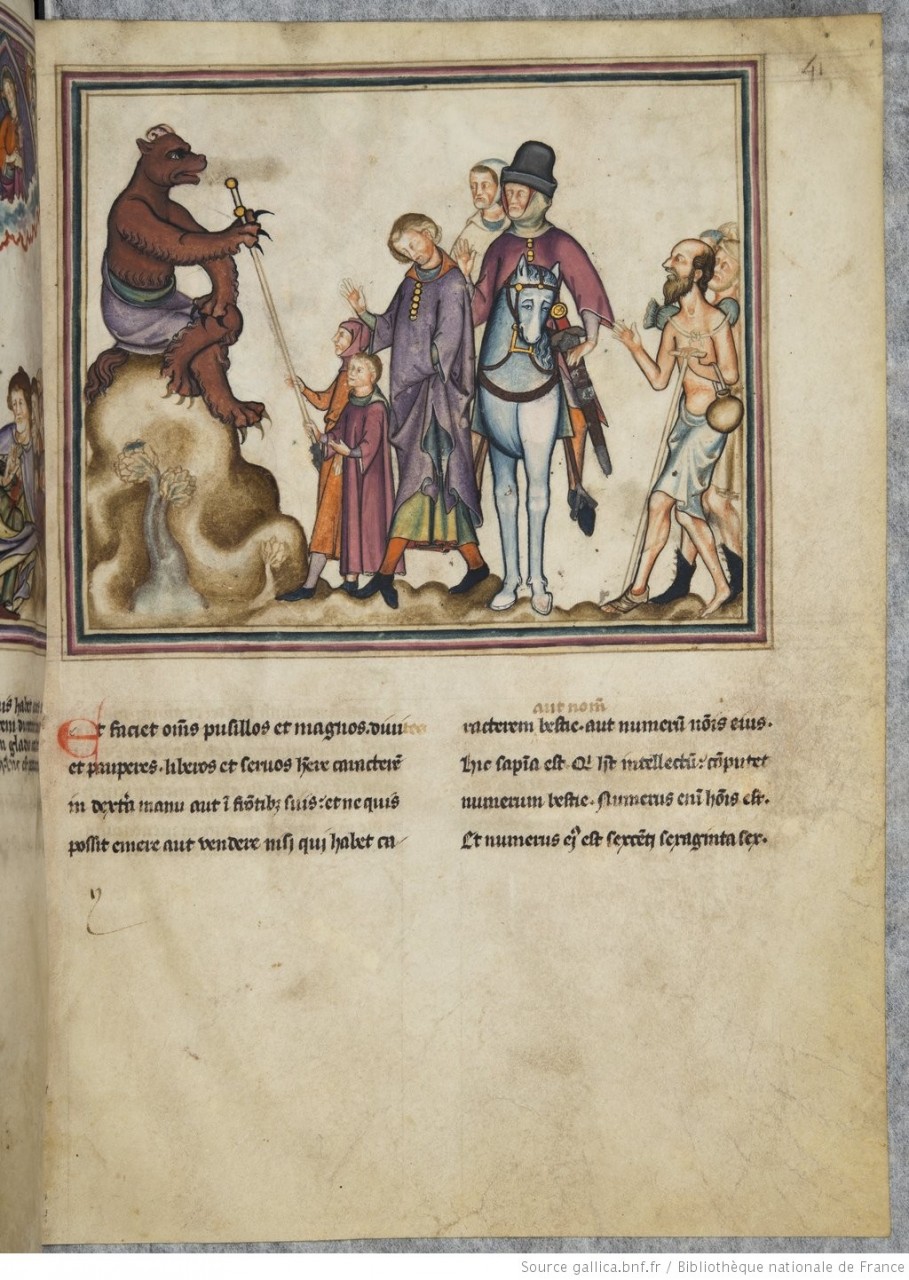 41
Et faciet om̄s pusillos et magnos. diuites
et pauperes. liberos et seruos h̄ere caractere᷑
in dext̄ra manu aut ī frōtibꝫ suis: et ne quis
possit emere aut vendere nisi qui habet ca-
aut nom̄
racterem bestie. aut numerū nōis eius.
hic sapīa est. Qi h̄t intellectū: cōputet
numerum bestie. Numerus eni hōis est.
Et numerus eꝯ est sexcēti sexaginta sex.
Source gallica.bnf.fr / Bibliothèque nationale de France